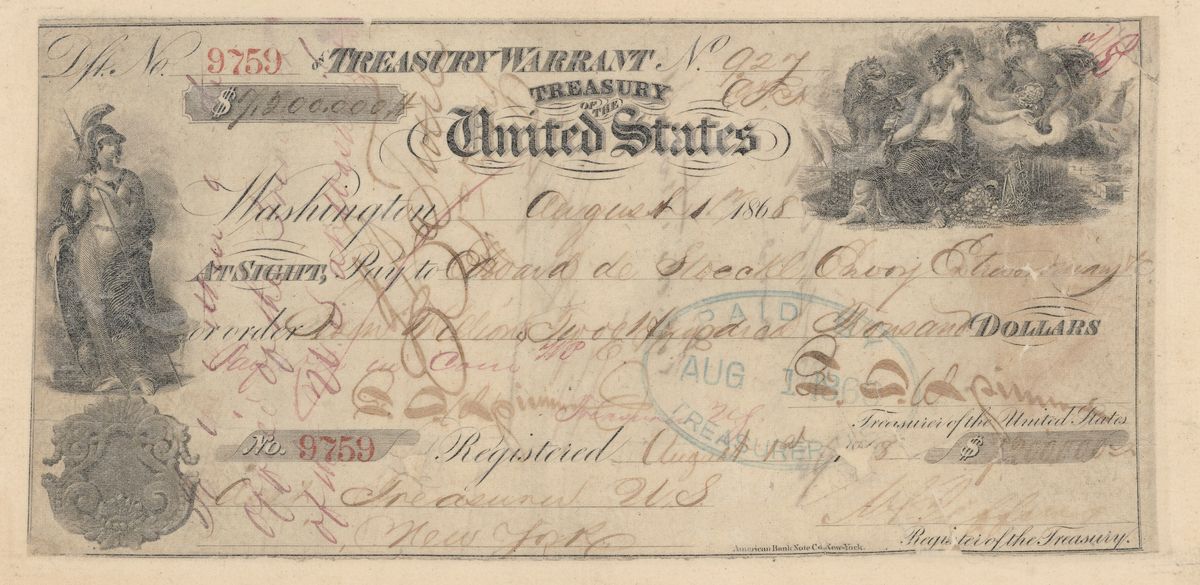 Dft. No. 9759 on Treasury Warrant No. 927
$7,200,000.
TREASURY
OF THE
United States
Washington August 1st 1868
At Sight, Pay to Edward de Stoeckl Envoy Extraordinary &c
or order Seven Millions Two Hundred Thousand Dollars
Pay in Coin
PAID
AUG 1 186
TREASURER
F E Spinner
Treasurer of the United States
F E Spinner
No. 9759 Registered August 1st 1868 $7,200,000
Asst Treasurer U.S.
New York
Register of the Treasury.
American Bank Note Co. New-York.